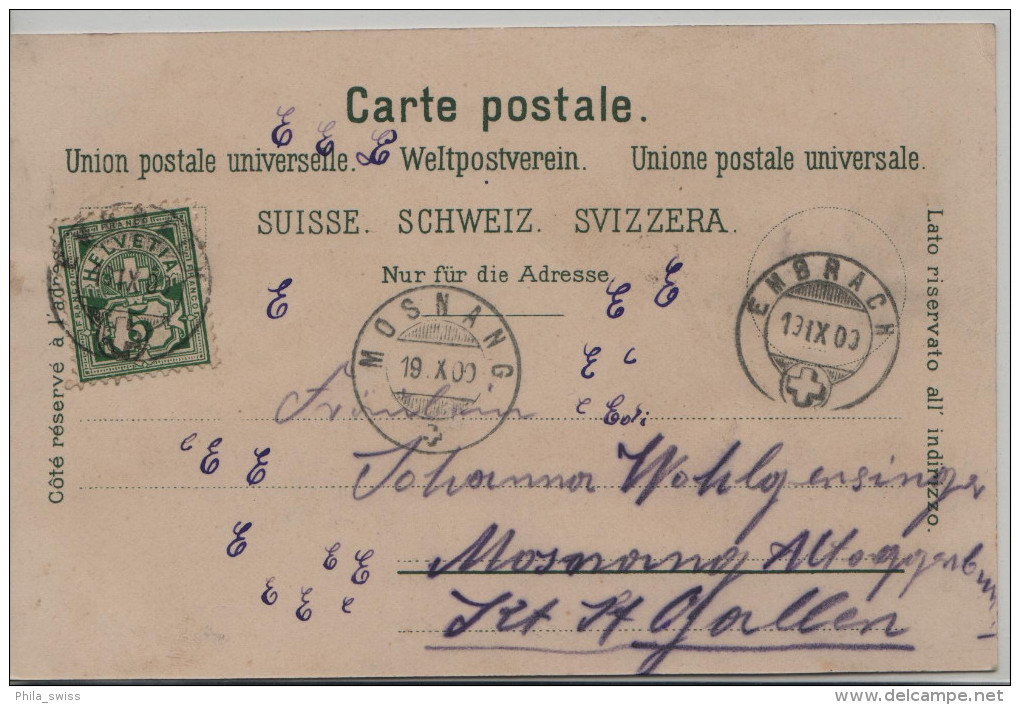 Carte postale.
E E E
Union postale universelle. Weltpostverein. Unione postale universale.
SUISSE. SCHWEIZ. SVIZZERA.
Nur für die Adresse.
Côté réservé à l'adresse.
Lato riservato all' indirizzo.
FRANCO
HELVETIA
5
MOSNANG.
19.X.00
EMBRACH
19 IX 00
E E E
E
Edi
E E
Fräulein
Johanna Wohlgensinger
Mosnang Alttoggenburg
E
E E
E E
Kt. St Gallen
Phila_swiss
www.delcampe.net